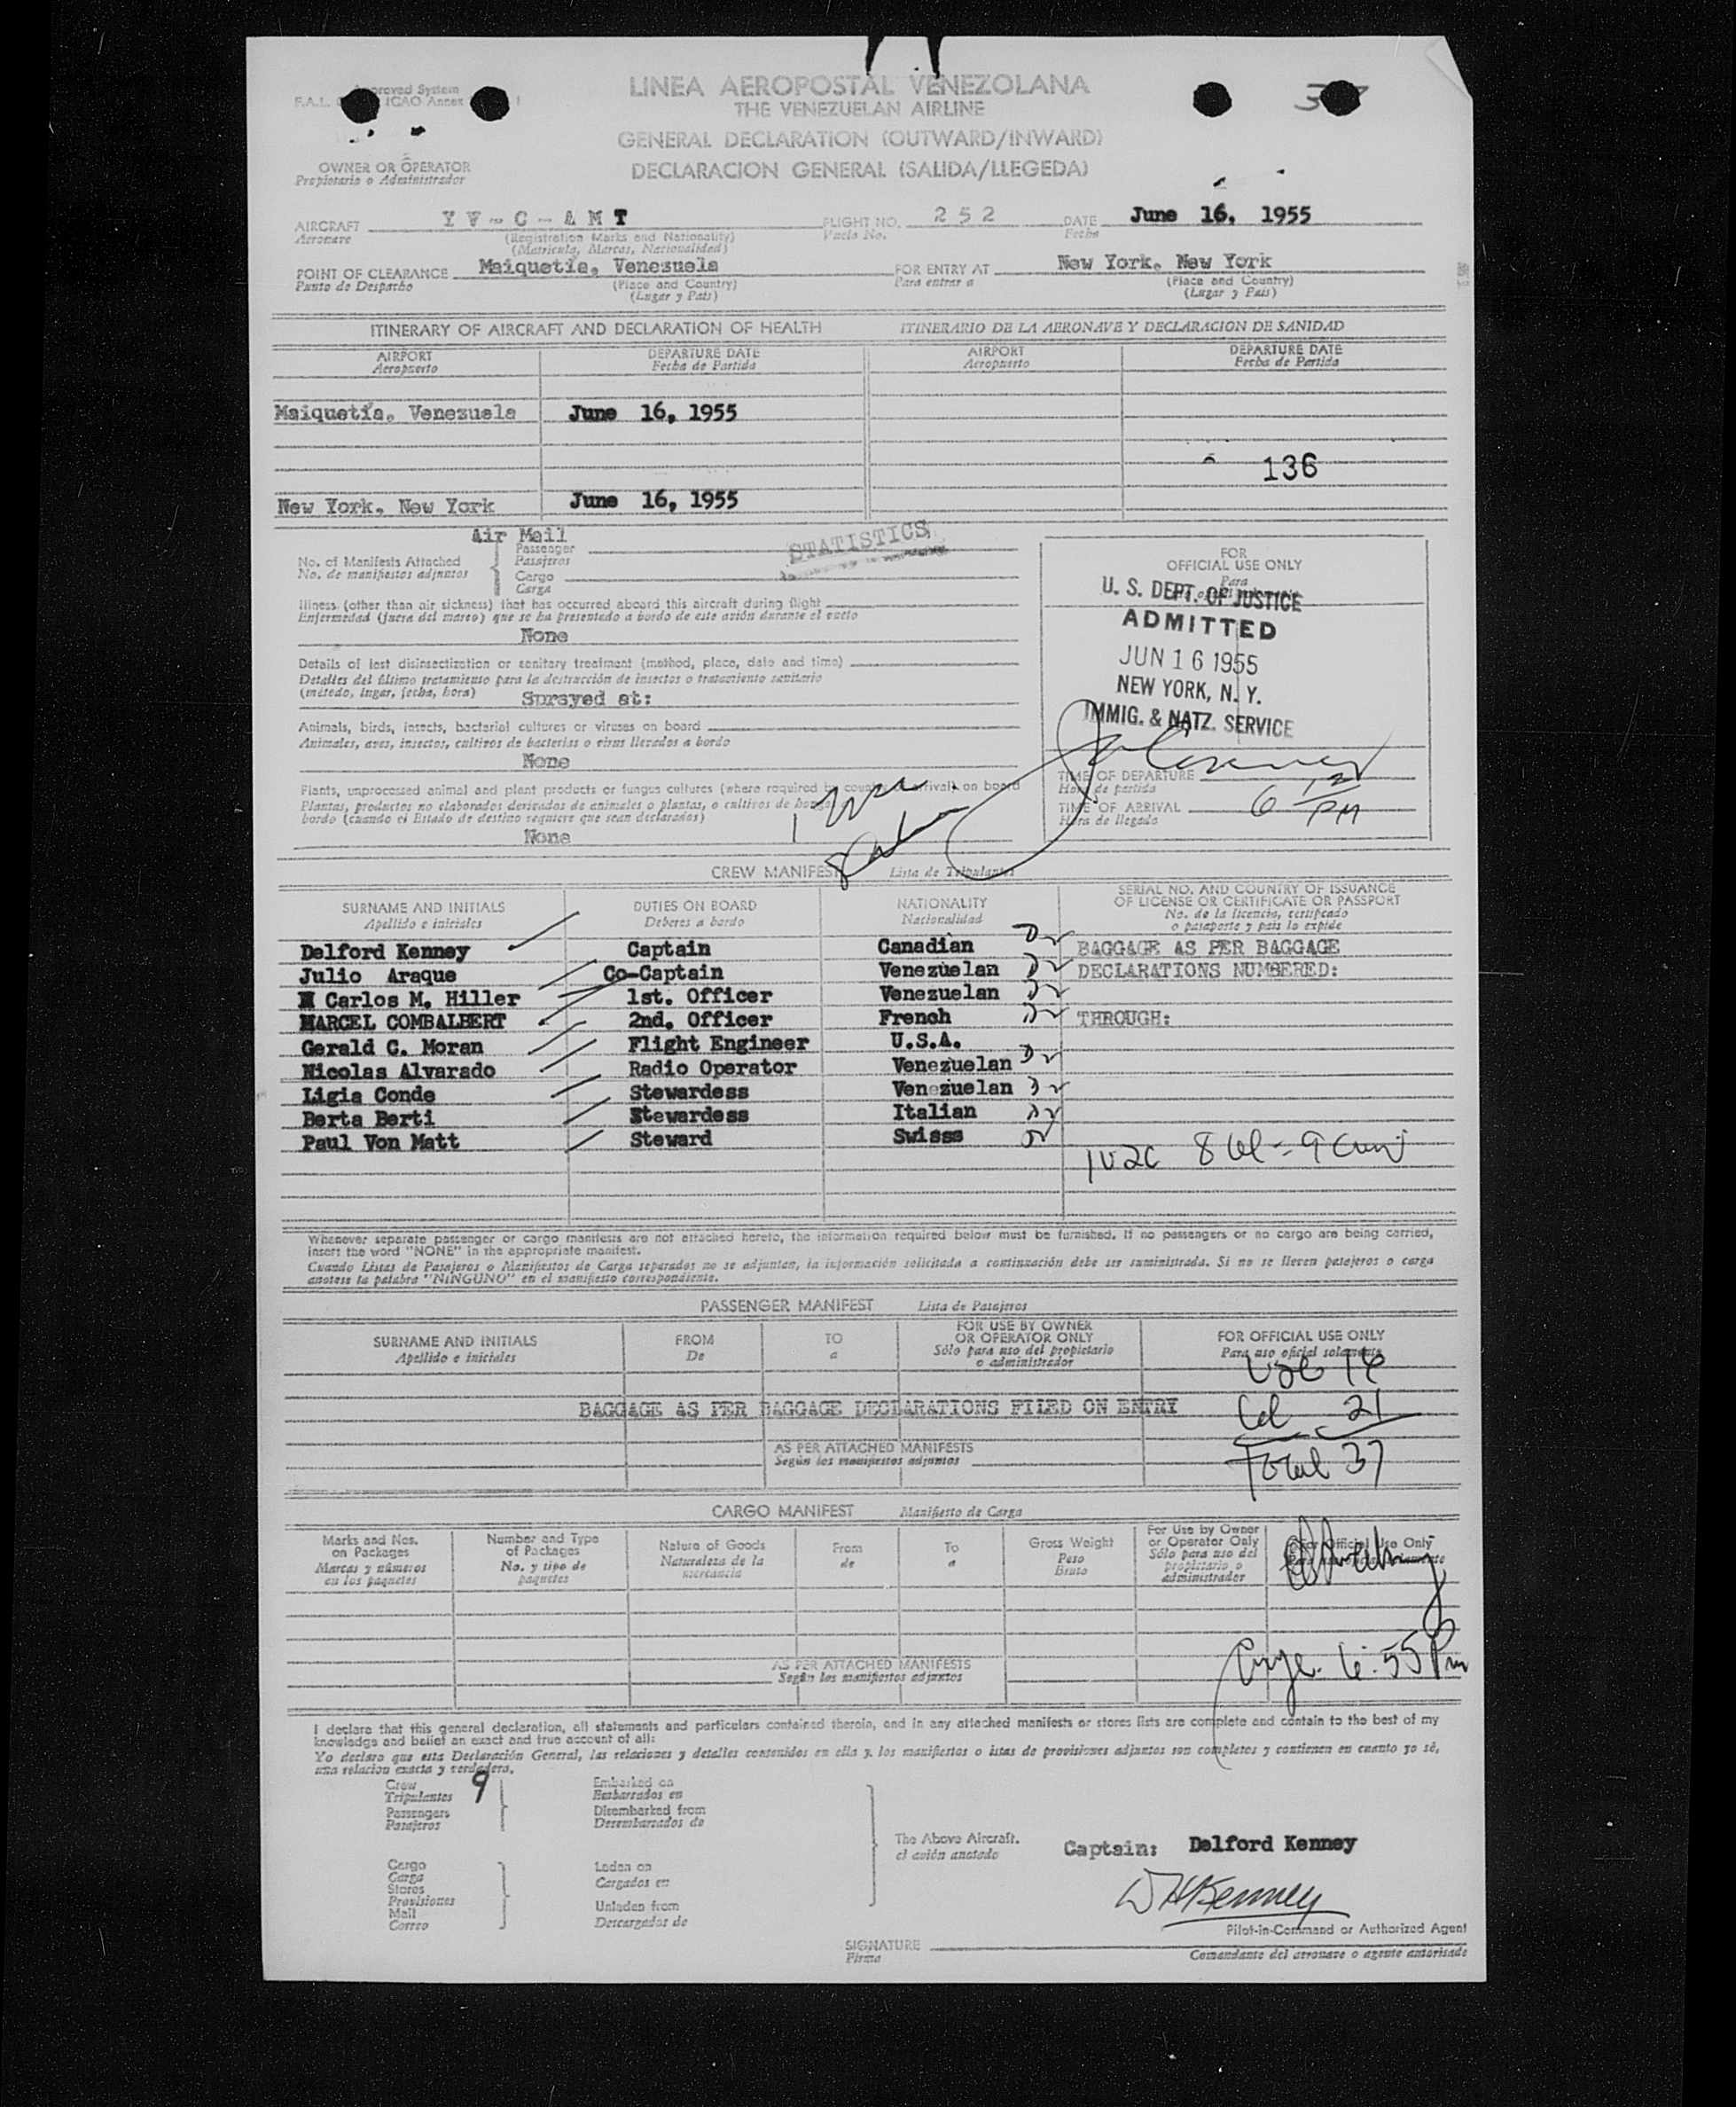 Approved System
F.A.L. ICAO Annex
LINEA AEROPOSTAL VENEZOLANA
THE VENEZUELAN AIRLINE
GENERAL DECLARATION (OUTWARD/INWARD)
DECLARACION GENERAL (SALIDA/LLEGEDA)
OWNER OR OPERATOR
Propietario o Administrador
AIRCRAFT YV-C-AMT FLIGHT NO. 252 DATE June 16, 1955
Aeronave (Registration Marks and Nationality) Vuelo No. Fecha
(Matricula, Marcas, Nacionalidad)
POINT OF CLEARANCE Maiquetía, Venezuela FOR ENTRY AT New York, New York
Punto de Despacho (Place and Country) Para entrar a (Place and Country)
(Lugar y País) (Lugar y País)
ITINERARY OF AIRCRAFT AND DECLARATION OF HEALTH ITINERARIO DE LA AERONAVE Y DECLARACION DE SANIDAD
AIRPORT DEPARTURE DATE AIRPORT DEPARTURE DATE
Aeropuerto Fecha de Partida Aeropuerto Fecha de Partida
Maiquetía, Venezuela June 16, 1955
136
New York, New York June 16, 1955
Air Mail
STATISTICS
No. of Manifests Attached Passenger
No. de manifiestos adjuntos Pasajeros
Cargo
Carga
Illness (other than air sickness) that has occurred aboard this aircraft during flight
Enfermedad (fuera del mareo) que se ha presentado a bordo de este avión durante el vuelo
None
Details of last disinsectization or sanitary treatment (method, place, date and time)
Detalles del último tratamiento para la destrucción de insectos o tratamiento sanitario
(método, lugar, fecha, hora) Sprayed at:
Animals, birds, insects, bacterial cultures or viruses on board
Animales, aves, insectos, cultivos de bacterias o virus llevados a bordo
None
Plants, unprocessed animal and plant products or fungus cultures (where required by country of arrival) on board
Plantas, productos no elaborados derivados de animales o plantas, o cultivos de hongos
bordo (cuando el Estado de destino requiere que sean declarados)
None
FOR
OFFICIAL USE ONLY
Para
U. S. DEPT. OF JUSTICE
ADMITTED
JUN 16 1955
NEW YORK, N. Y.
IMMIG. & NATZ. SERVICE
TIME OF DEPARTURE
Hora de partida
TIME OF ARRIVAL 6 12 PM
Hora de llegada
CREW MANIFEST Lista de Tripulantes
SURNAME AND INITIALS DUTIES ON BOARD NATIONALITY SERIAL NO. AND COUNTRY OF ISSUANCE
Apellido e iniciales Deberes a bordo Nacionalidad OF LICENSE OR CERTIFICATE OR PASSPORT
No. de la licencia, certificado
o pasaporte y país lo expide
Delford Kenney Captain Canadian BAGGAGE AS PER BAGGAGE
Julio Araque Co-Captain Venezuelan DECLARATIONS NUMBERED:
Carlos M. Hiller 1st. Officer Venezuelan
MARCEL COMBALBERT 2nd. Officer French THROUGH:
Gerald C. Moran Flight Engineer U.S.A.
Nicolas Alvarado Radio Operator Venezuelan
Ligia Conde Stewardess Venezuelan
Berta Berti Stewardess Italian
Paul Von Matt Steward Swiss
Whenever separate passenger or cargo manifests are not attached hereto, the information required below must be furnished. If no passengers or no cargo are being carried,
insert the word "NONE" in the appropriate manifest.
Cuando Listas de Pasajeros o Manifiestos de Carga separados no se adjuntan, la información solicitada a continuación debe ser suministrada. Si no se lleven pasajeros o carga
anotese la palabra "NINGUNO" en el manifiesto correspondiente.
PASSENGER MANIFEST Lista de Pasajeros
SURNAME AND INITIALS FROM TO FOR USE BY OWNER FOR OFFICIAL USE ONLY
Apellido e iniciales De a OR OPERATOR ONLY Para uso oficial solamente
Sólo para uso del propietario
o administrador
USC 16
BAGGAGE AS PER BAGGAGE DECLARATIONS FILED ON ENTRY 21
AS PER ATTACHED MANIFESTS Total 37
Según los manifiestos adjuntos
CARGO MANIFEST Manifiesto de Carga
Marks and Nos. Number and Type Nature of Goods From To Gross Weight For Use by Owner For Official Use Only
on Packages of Packages Naturaleza de la de a Peso or Operator Only
Marcas y números No. y tipo de mercancia Bruto Sólo para uso del
en los paquetes paquetes propietario o
administrador
AS PER ATTACHED MANIFESTS 6:55 Pm
Según los manifiestos adjuntos
I declare that this general declaration, all statements and particulars contained therein, and in any attached manifests or stores lists are complete and contain to the best of my
knowledge and belief an exact and true account of all:
Yo declaro que esta Declaración General, las relaciones y detalles contenidos en ella y los manifiestos o istas de provisiones adjuntos son completos y contienen en cuanto yo sé,
una relacion exacta y verdadera.
Crew 9 Embarked on
Tripulantes Embarcados en
Passengers Disembarked from
Pasajeros Desembarcados de
The Above Aircraft. Captain: Delford Kenney
el avión anotado
Cargo Laden on
Carga Cargados en
Stores
Provisiones Unladen from
Mail Descargados de
Correo
DHKenney
Pilot-in-Command or Authorized Agent
SIGNATURE
Firma Comandante del aeronave o agente autorisado